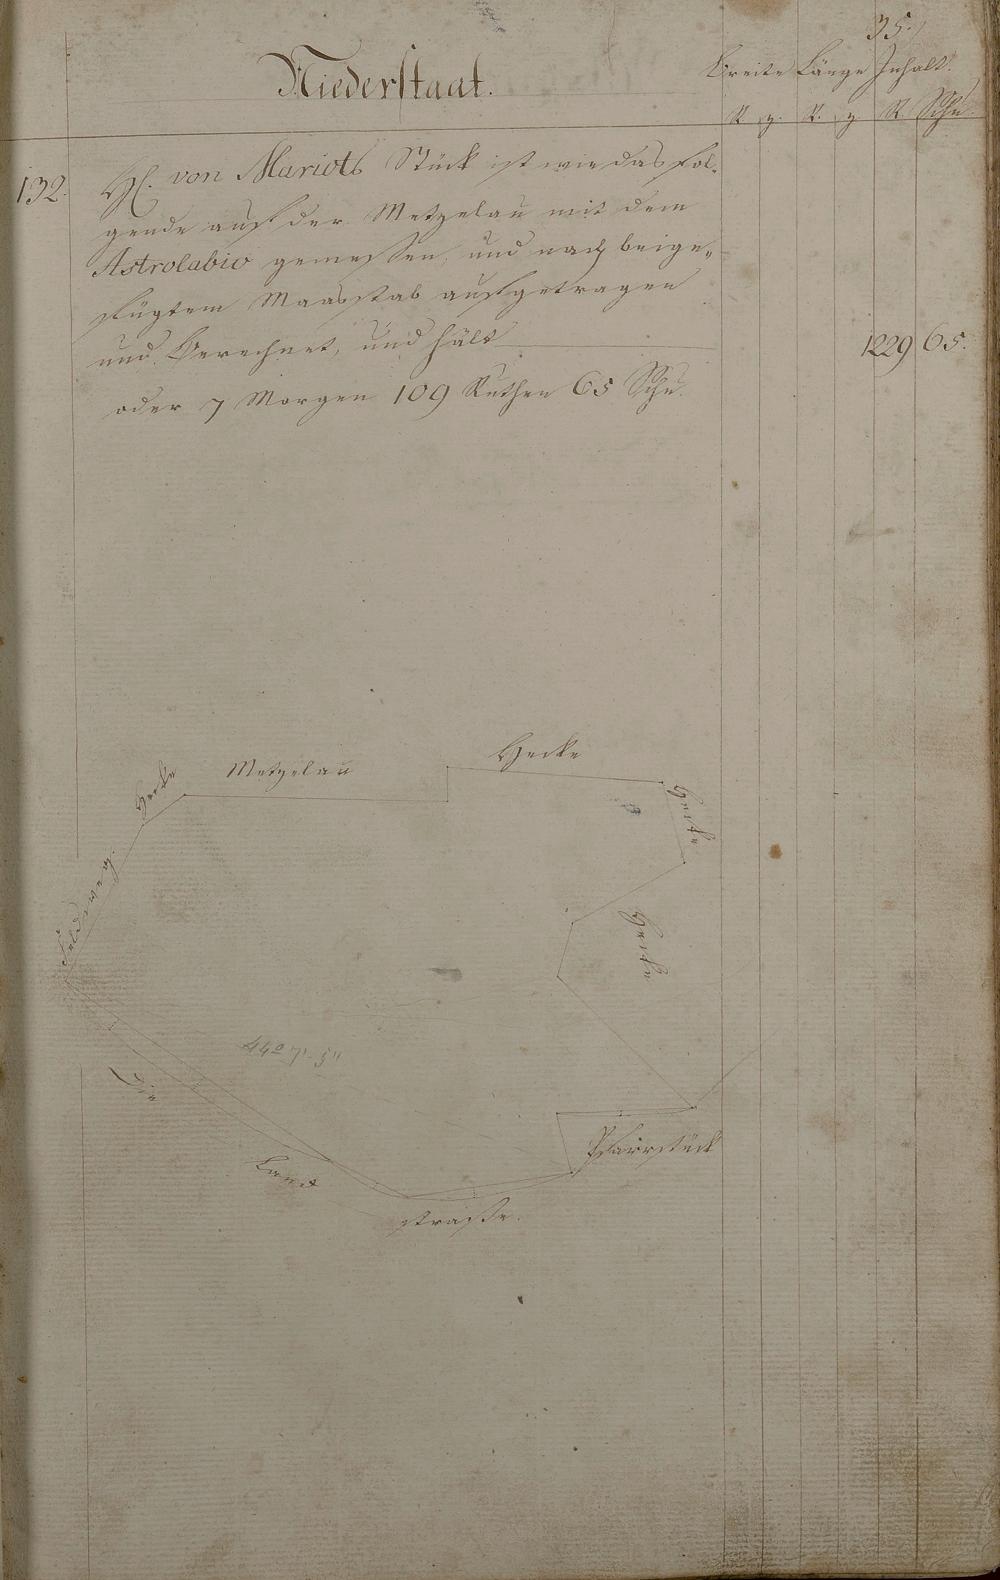 35.
Niederstaat.
Breite Länge Inhalt.
R. z. R. z R Schu.
132. H. von Mariots Stück ist wie das fol-
gende auf der Metzelau mit dem
Astrolabio gemessen, und nach beige-
fügtem Maasstab aufgetragen
und Berechnet, und hält 1229 65.
oder 7 Morgen 109 Ruthen 65 Schu.
Hecke
Metzelau
Hecke
Hecke
Feldweg.
Hecke
44° 7' 5"
Die
Land
straße.
Pfarrstück